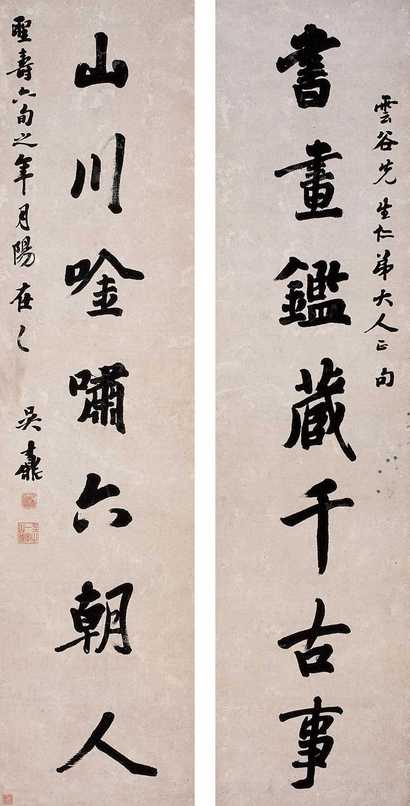 雲谷先生仁弟大人正句
書畫鑑藏千古事
山川唫嘯六朝人
聖壽六旬之年月陽在乙
吳鼒